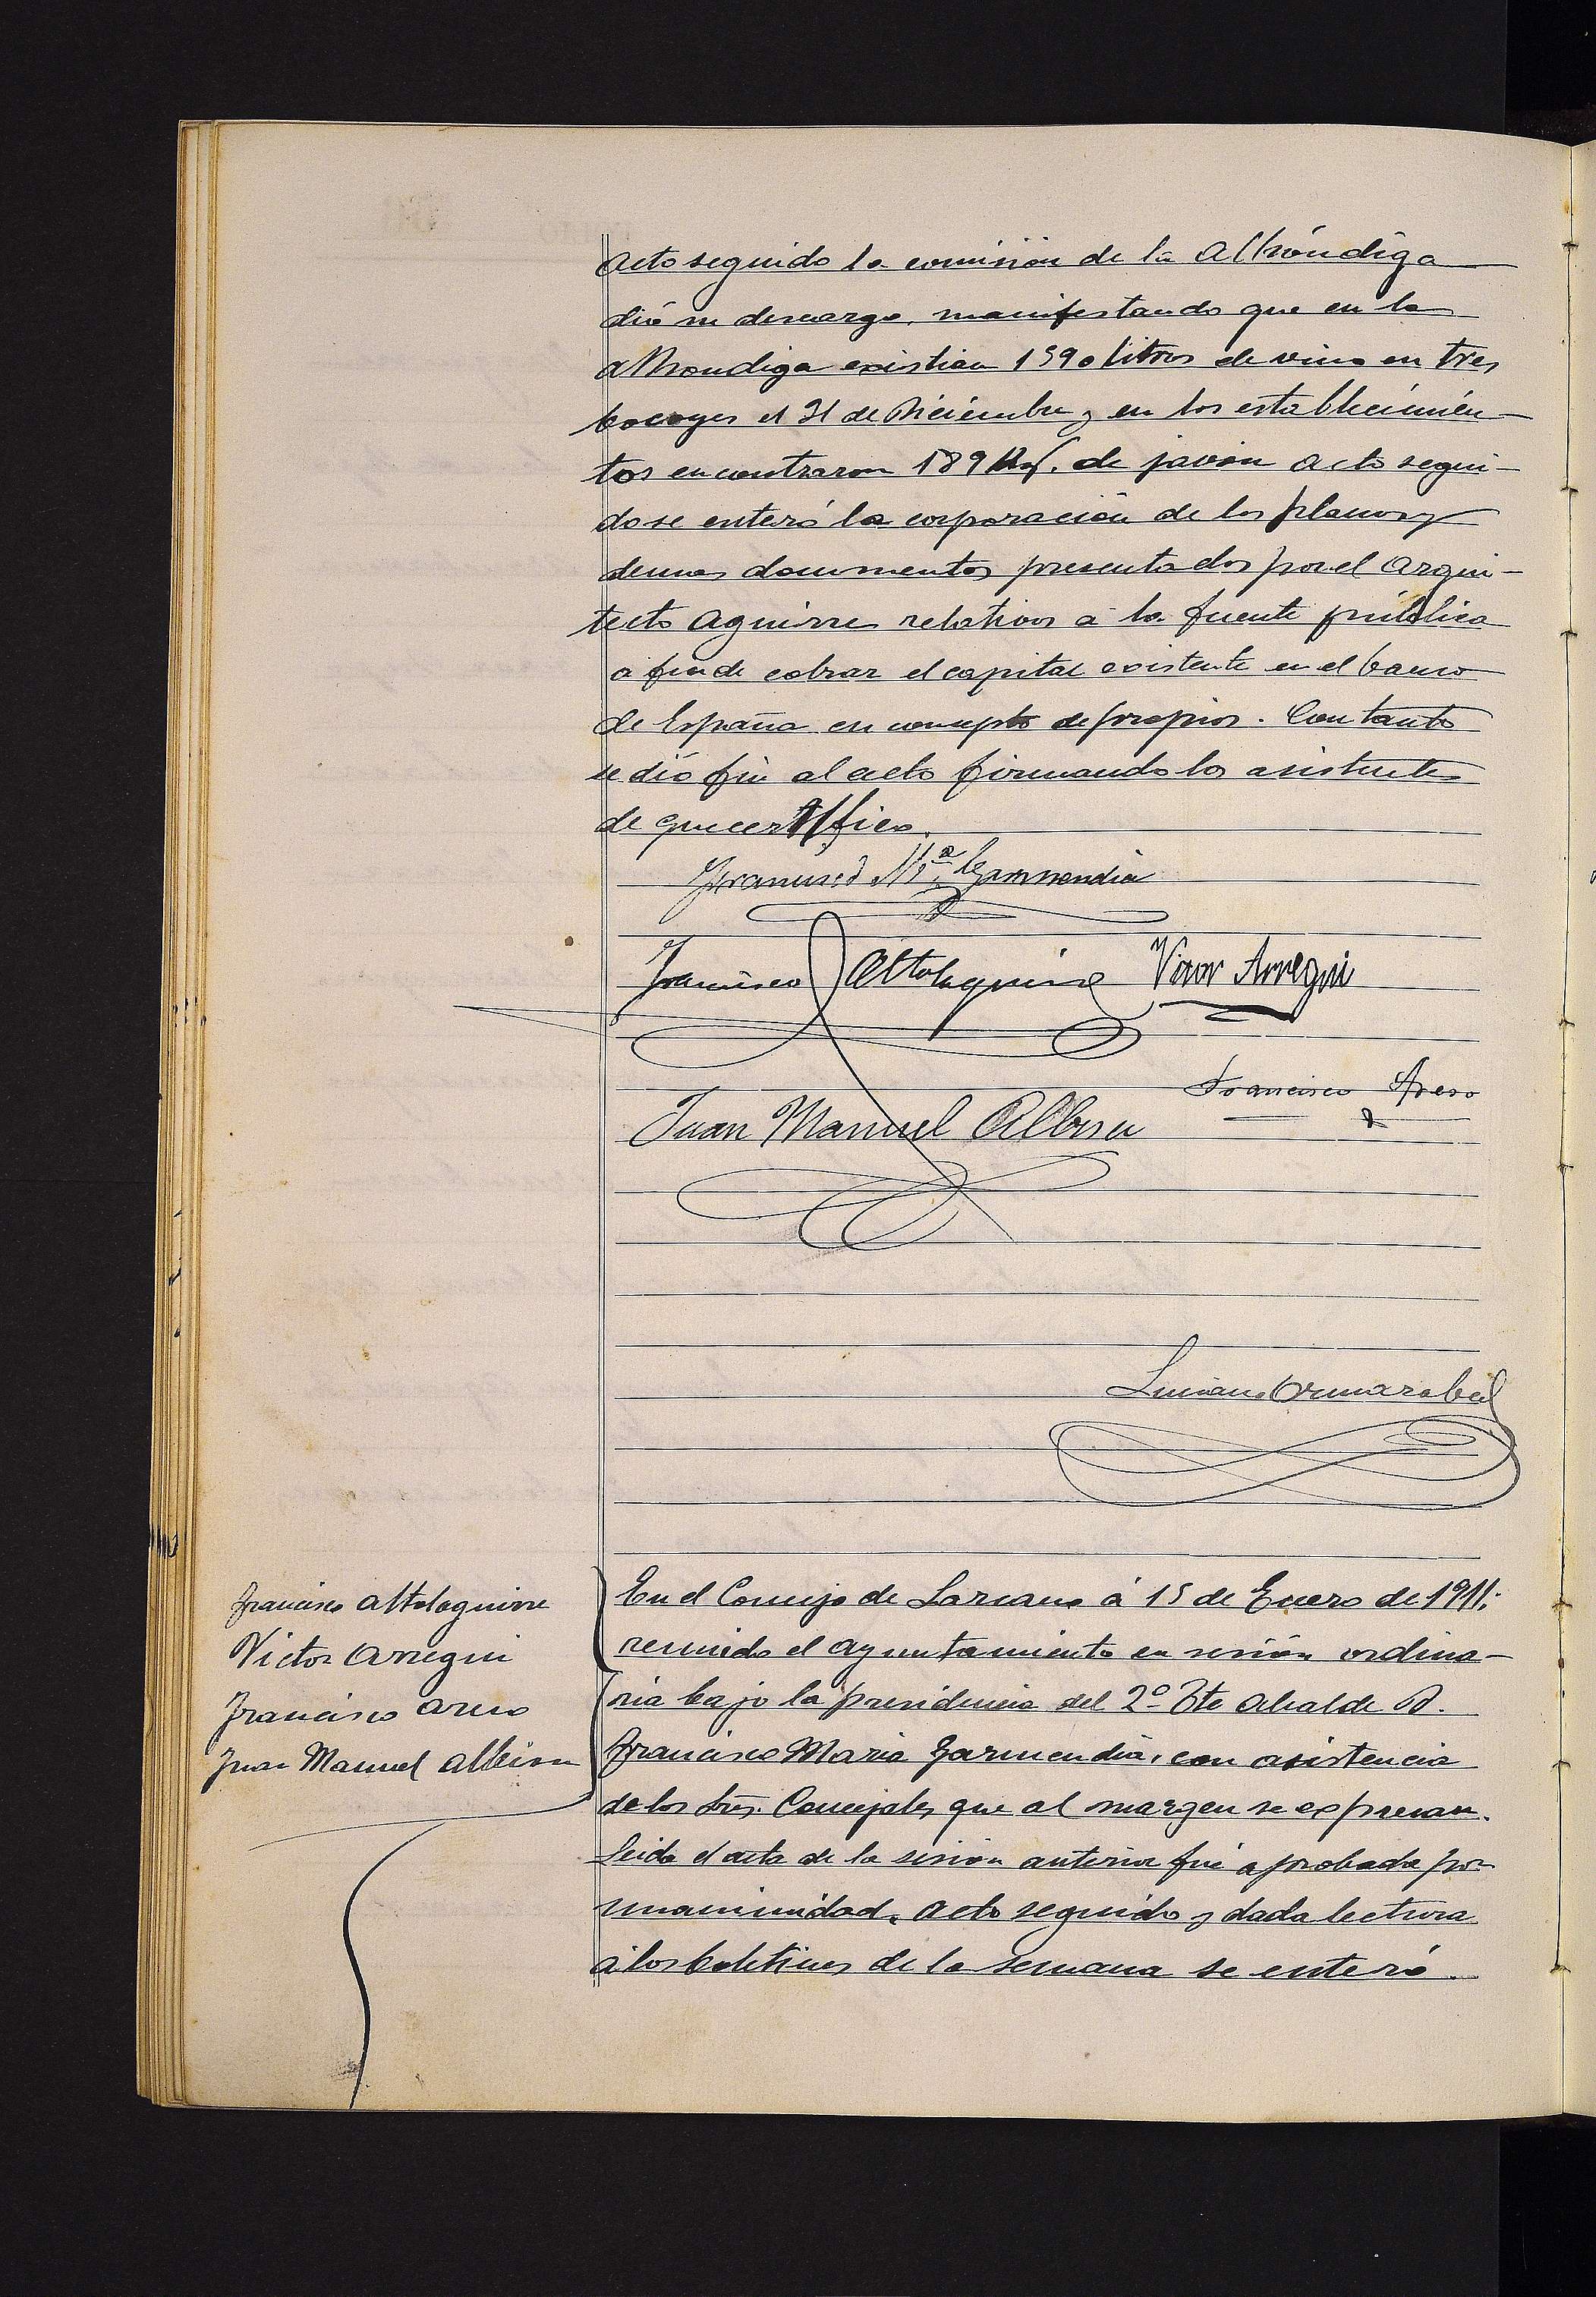 acto seguido la comisión de la Alhóndiga
dió su descargo, manifestando que en la
alhondiga existian 1590 litros de vino en tres
bocoyes el 31 de Diciembre y en los establecimien-
tos encontraron 189 Kgs. de javón acto segui-
do se enteró la corporación de los planos y
demas documentos presentados por el arqui-
tecto Aguirre relativos á la fuente pública
á fin de cobrar el capital existente en el banco
de España en concepto de propios. Con tanto
se dió fin al acto firmando los asistentes
de que certifico.
Francisco M.ª Garmendia
Francisco Altolaguirre Victor Arregui
Francisco Areso
Juan Manuel Albisu
Luciano Ormazabal
Francisco Altolaguirre
Victor Arregui
Francisco Areso
Juan Manuel Albisu
En el Concejo de Lazcano á 15 de Enero de 1911;
reunido el ayuntamiento en sesión ordina-
ria bajo la presidencia del 2º Tte Alcalde D.
Francisco Maria Garmendia, con asistencia
de los Srs. Concejales que al margen se expresan.
Leida el acta de la sesión anterior fué aprobada por
unanimidad. Acto seguido y dada lectura
á los boletines de la semana se enteró